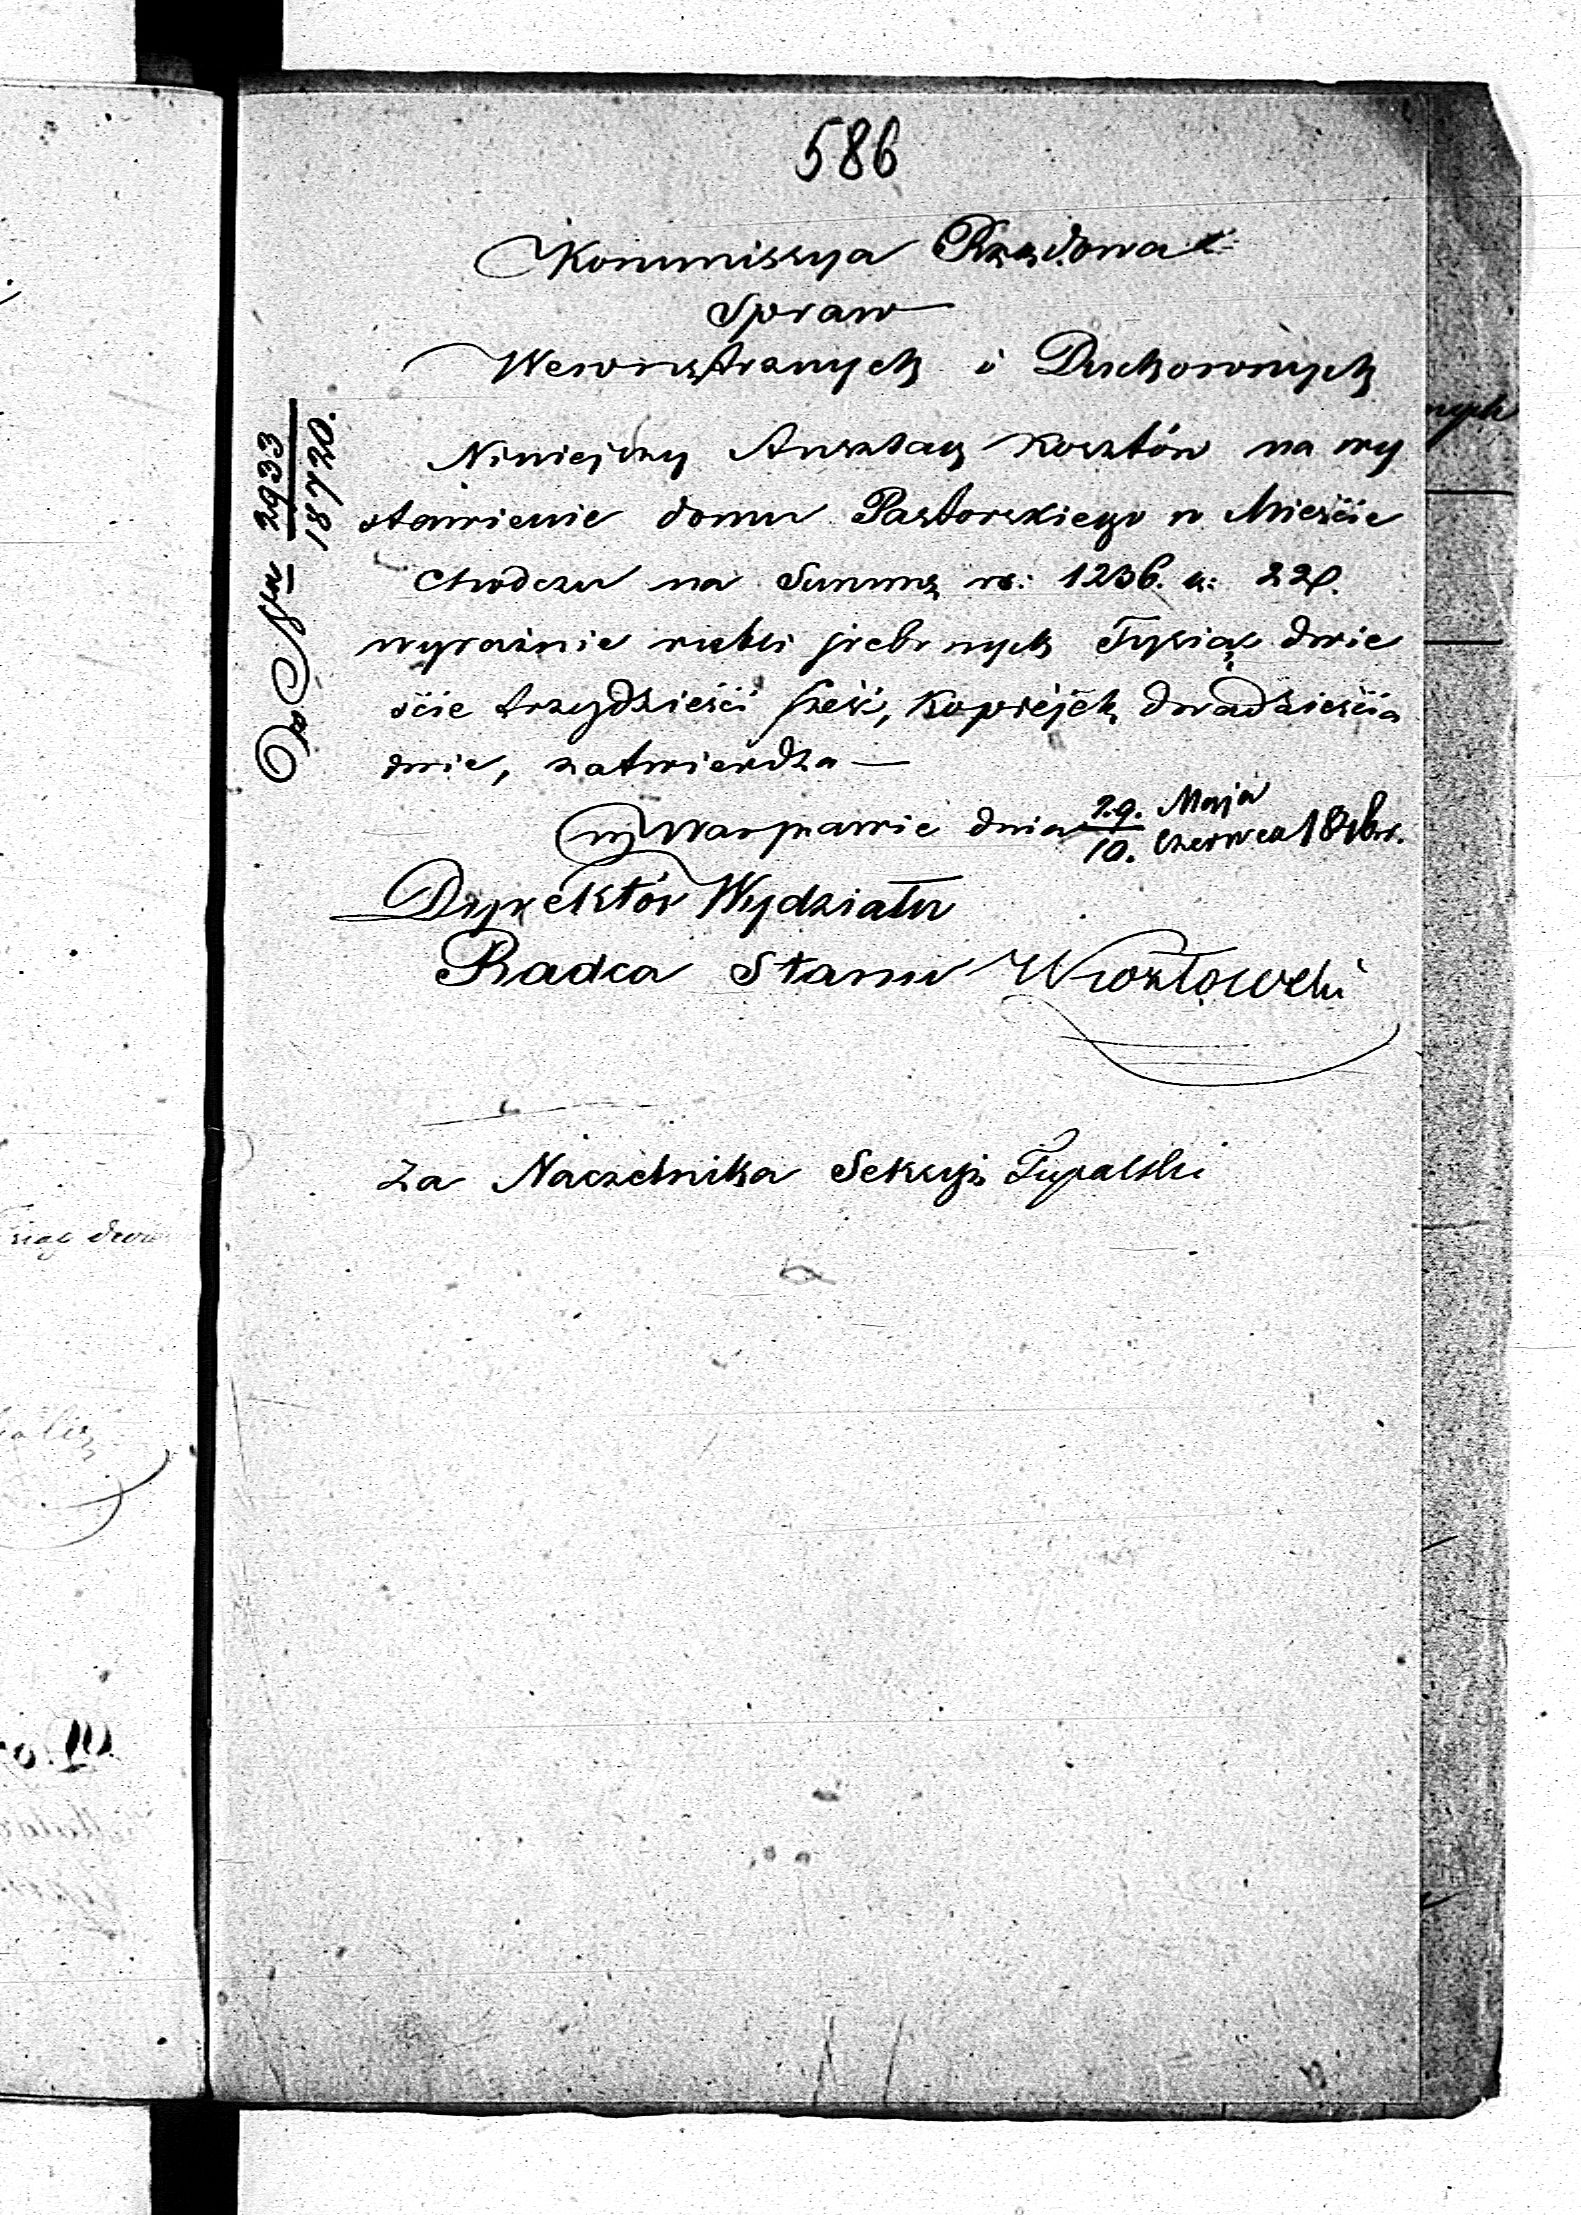 586
Kommissya Rządowa
Spraw
Wewnętrznych i Duchownych
Do Nru 2933
18720.
Niniejszy Anszlag kosztów na wy
stawienie domu Pastorskiego w Mieście
Chodczu na Summę rs: 1236. k: 22.
wyraźnie rubli srebrnych Tysiąc dwie
ście trzydzieści sześć, kopiejek dwadzieścia
dwie, zatwierdza —
w Warszawie dnia 29. Maja
10. Czerwca
Dyrektór Wydziału
Radca Stanu
za Naczelnika Sekcyi